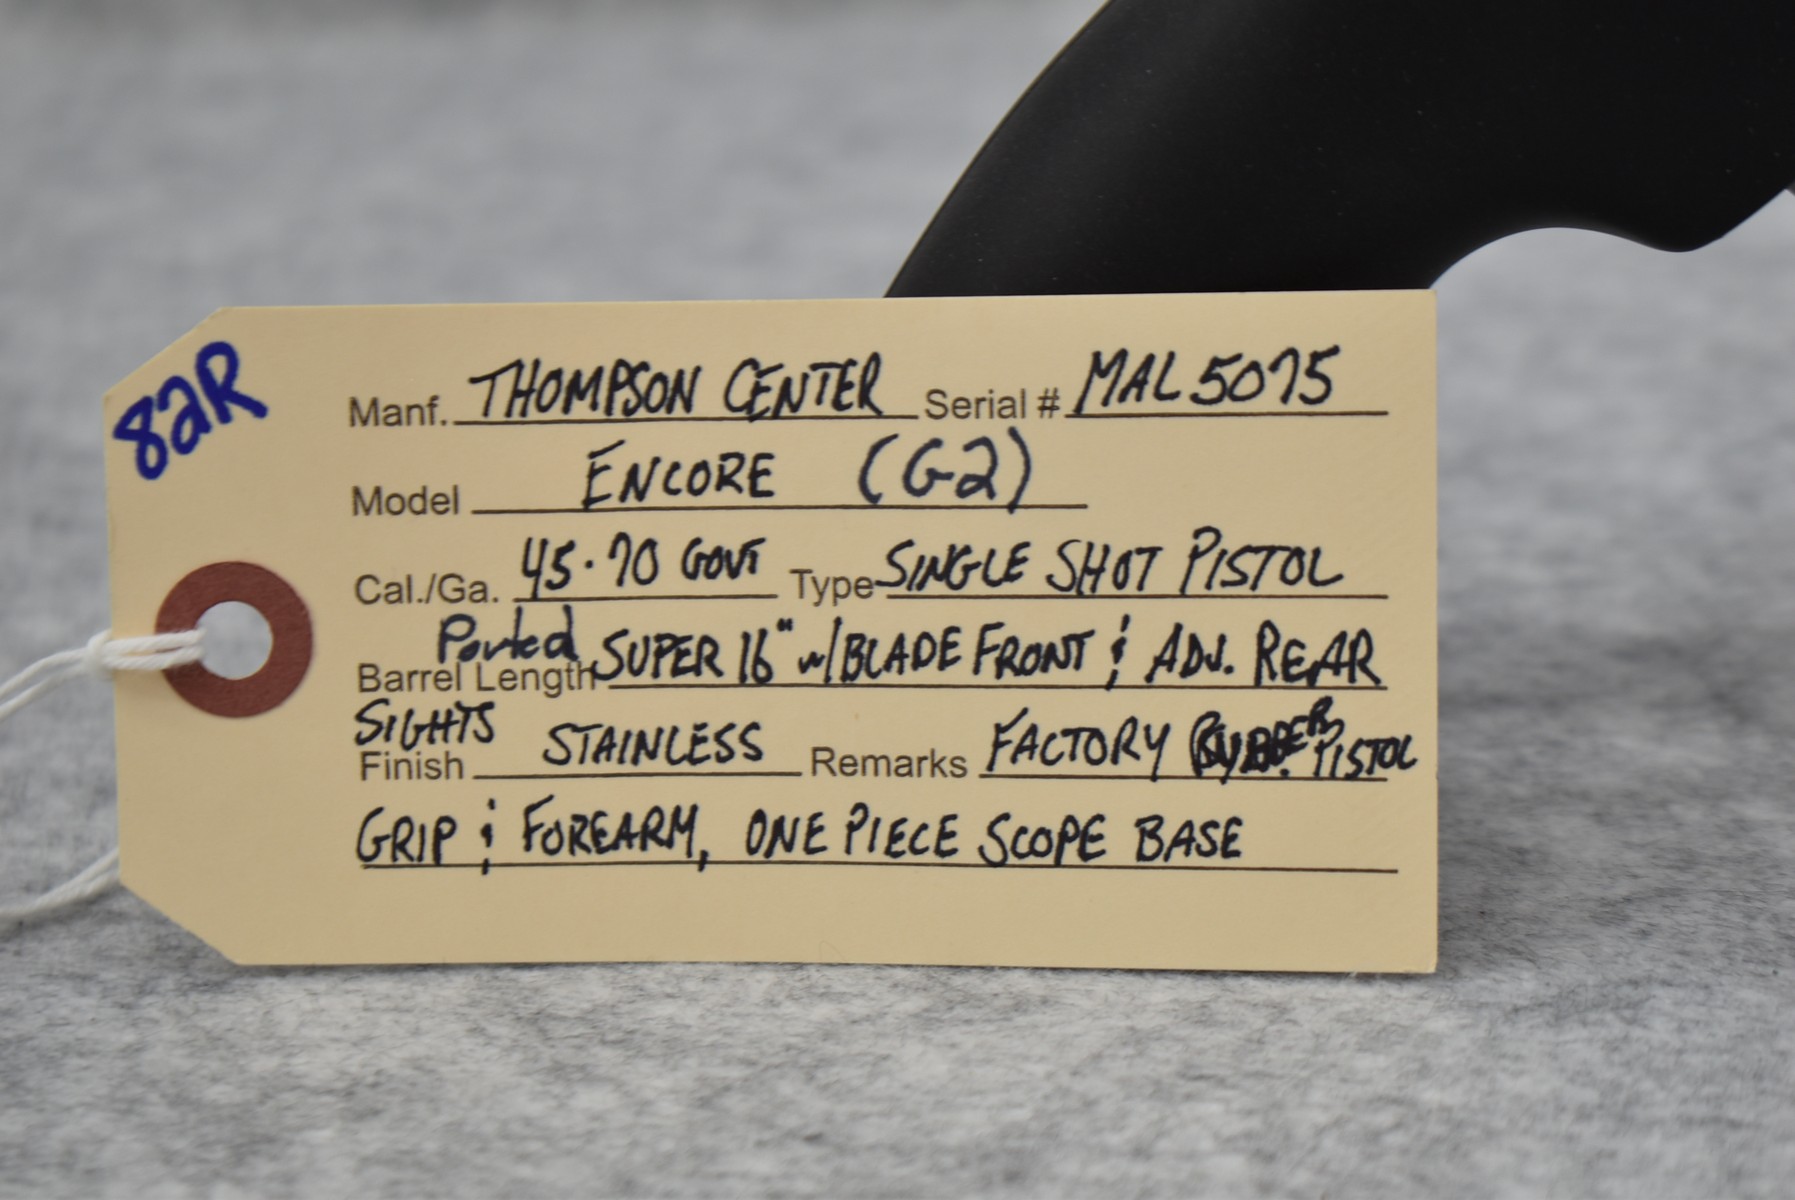 82R
Manf. THOMPSON CENTER Serial # MAL5075
Model ENCORE (G2)
Cal./Ga. 45·70 GOVT Type SINGLE SHOT PISTOL
Barrel Length Ported SUPER 16" w/BLADE FRONT & ADJ. REAR
SIGHTS
Finish STAINLESS Remarks FACTORY RUBBER PISTOL
GRIP & FOREARM, ONE PIECE SCOPE BASE